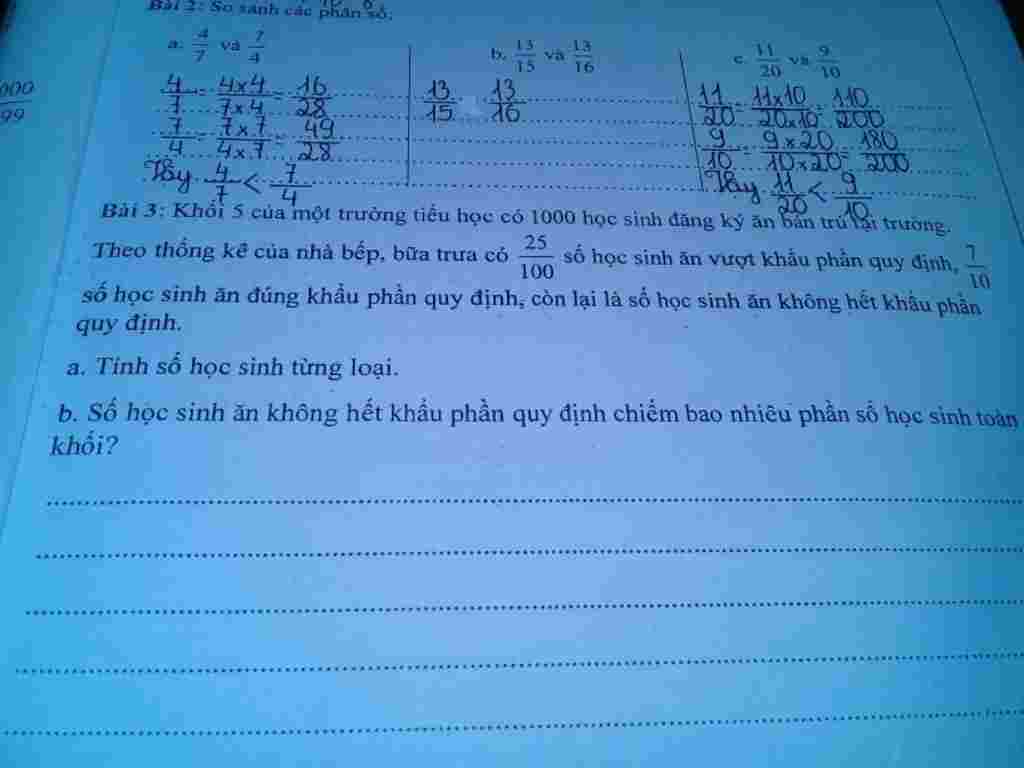 Bài 2: So sánh các phân số:
a. 4/7 và 7/4
b. 13/15 và 13/16
c. 11/20 và 9/10
000/99
4/7 = 4x4/7x4 = 16/28
7/4 = 7x7/4x7 = 49/28
Vậy 4/7 < 7/4
13/15 13/16
11/20 = 11x10/20x10 = 110/200
9/10 = 9x20/10x20 = 180/200
Vậy 11/20 < 9/10
Bài 3: Khối 5 của một trường tiểu học có 1000 học sinh đăng ký ăn bán trú tại trường.
Theo thống kê của nhà bếp, bữa trưa có 25/100 số học sinh ăn vượt khẩu phần quy định, 7/10
số học sinh ăn đúng khẩu phần quy định, còn lại là số học sinh ăn không hết khẩu phần
quy định.
a. Tính số học sinh từng loại.
b. Số học sinh ăn không hết khẩu phần quy định chiếm bao nhiêu phần số học sinh toàn
khối?